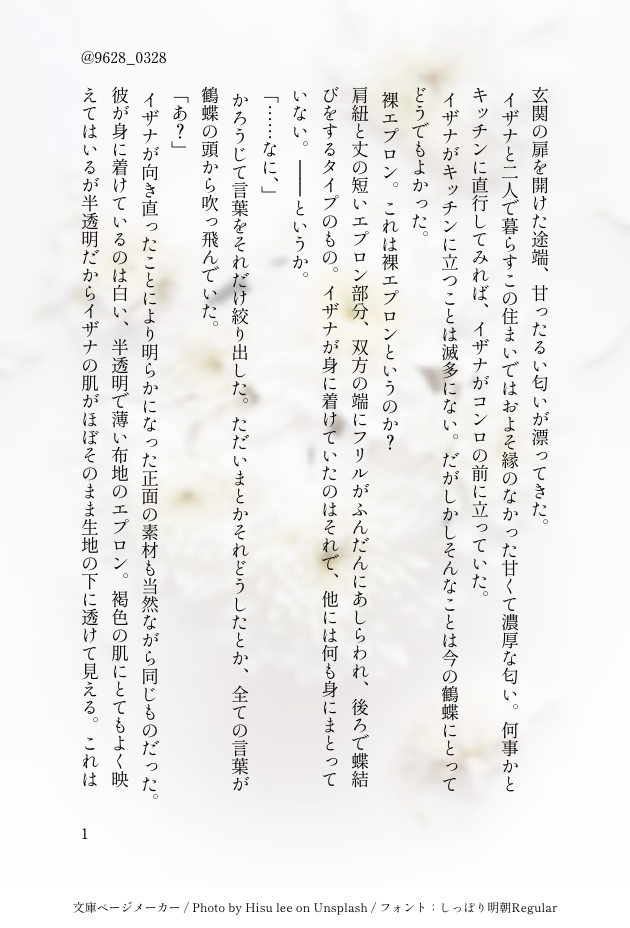 @9628_0328
玄関の扉を開けた途端、甘ったるい匂いが漂ってきた。
イザナと二人で暮らすこの住まいではおよそ縁のなかった甘くて濃厚な匂い。何事かと
キッチンに直行してみれば、イザナがコンロの前に立っていた。
イザナがキッチンに立つことは滅多にない。だがしかしそんなことは今の鶴蝶にとって
どうでもよかった。
裸エプロン。これは裸エプロンというのか?
肩紐と丈の短いエプロン部分、双方の端にフリルがふんだんにあしらわれ、後ろで蝶結
びをするタイプのもの。イザナが身に着けていたのはそれで、他には何も身にまとって
いない。――というか。
「……なに、」
かろうじて言葉をそれだけ絞り出した。ただいまとかそれどうしたとか、全ての言葉が
鶴蝶の頭から吹っ飛んでいた。
「あ?」
イザナが向き直ったことにより明らかになった正面の素材も当然ながら同じものだった。
彼が身に着けているのは白い、半透明で薄い布地のエプロン。褐色の肌にとてもよく映
えてはいるが半透明だからイザナの肌がほぼそのまま生地の下に透けて見える。これは
1
文庫ページメーカー / Photo by Hisu lee on Unsplash / フォント:しっぽり明朝Regular